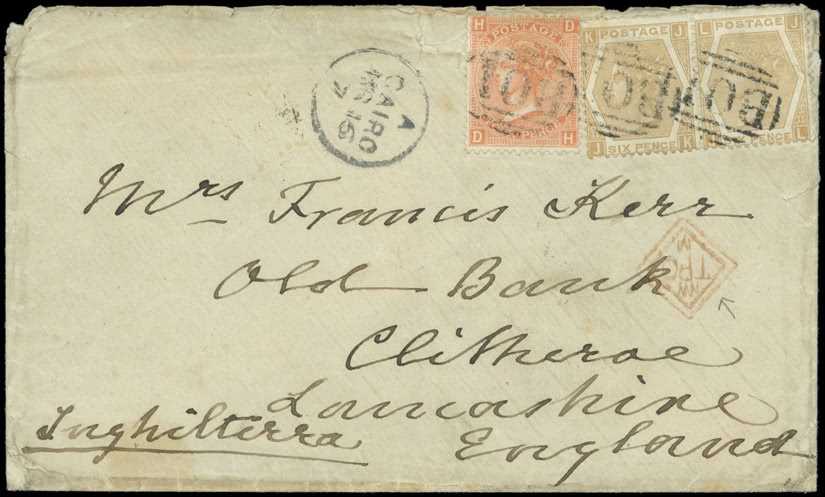 H D
POSTAGE
D PENCE H
K POSTAGE J
J SIX PENCE K
L POSTAGE J
J PENCE L
B01
B01
B01
A
CAIRO
16
7
Mrs Francis Kerr
Old Bank
Clitheroe
Lancashire
England
Inghilterra
TPO